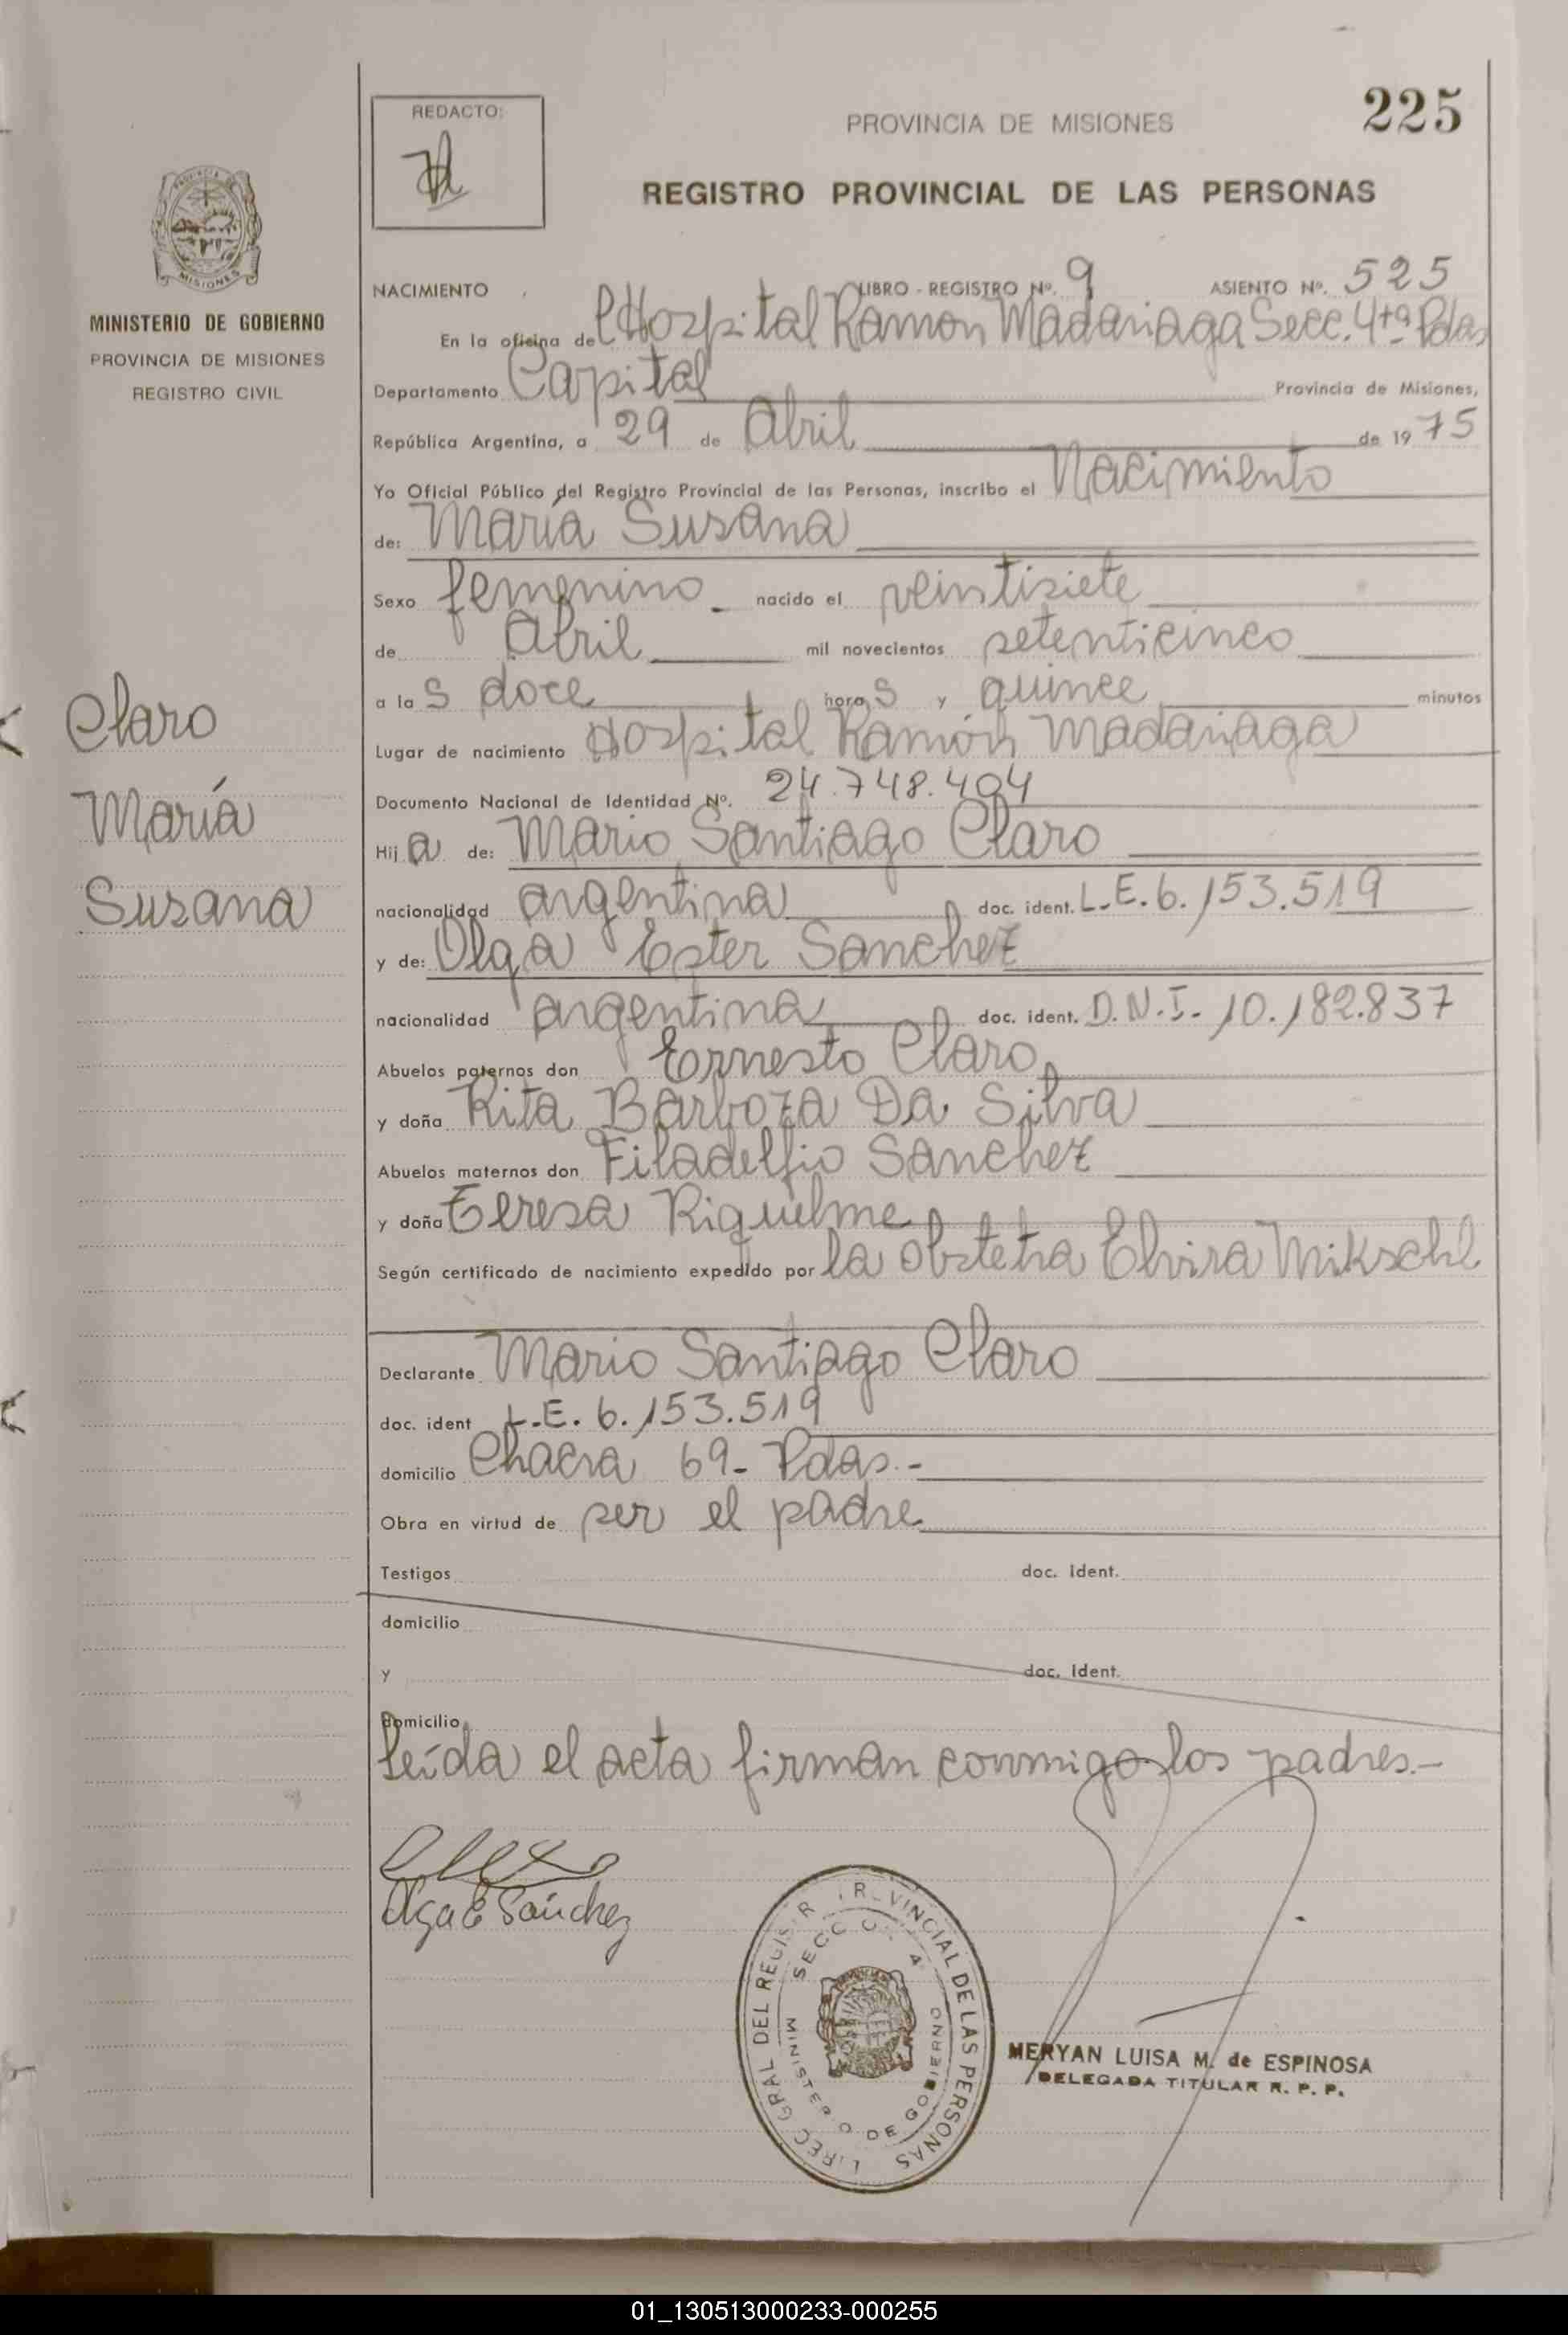 225
REDACTO:
PROVINCIA DE MISIONES
REGISTRO PROVINCIAL DE LAS PERSONAS
MISIONES
MINISTERIO DE GOBIERNO
PROVINCIA DE MISIONES
REGISTRO CIVIL
Claro
María
Susana
NACIMIENTO LIBRO - REGISTRO Nº. 9 ASIENTO Nº. 525
En la oficina del Hospital Ramon Madariaga Secc. 4ta Pdas
Departamento Capital Provincia de Misiones,
República Argentina, a 29 de Abril de 1975
Yo Oficial Público del Registro Provincial de las Personas, inscribo el Nacimiento
de: María Susana
Sexo femenino nacido el veintisiete
de Abril mil novecientos setenticinco
a las doce horas y quince minutos
Lugar de nacimiento Hospital Ramón Madariaga
Documento Nacional de Identidad Nº. 24.748.404
Hija de: Mario Santiago Claro
nacionalidad argentina doc. ident. L.E. 6.153.519
y de: Olga Ester Sanchez
nacionalidad argentina doc. ident. D.N.I. 10.182.837
Abuelos paternos don Ernesto Claro
y doña Rita Barboza Da Silva
Abuelos maternos don Filadelfio Sanchez
y doña Teresa Riquelme
Según certificado de nacimiento expedido por la obstetra Elvira Mikschl
Declarante Mario Santiago Claro
doc. ident L.E. 6.153.519
domicilio Chacra 69- Pdas.-
Obra en virtud de ser el padre
Testigos doc. ident.
domicilio
y doc. ident.
domicilio
leída el acta firman conmigo los padres.-
Olga E Sánchez
SECC 4
MINISTERIO DE GOBIERNO
GRAL DEL REGISTR VINCIAL DE LAS PERSONAS
MERYAN LUISA M. de ESPINOSA
DELEGADA TITULAR R. P. P.
01_130513000233-000255